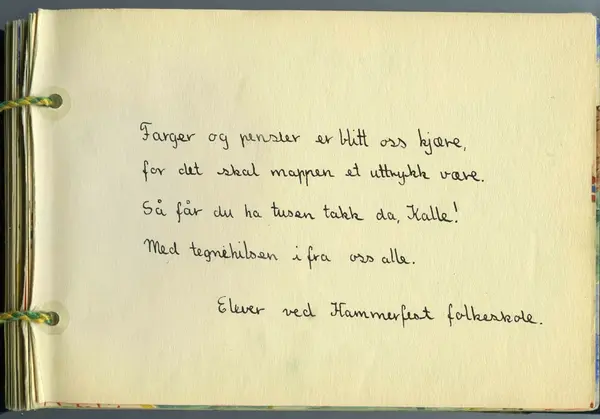 Farger og pensler er blitt oss kjære,
for det skal mappen et uttrykk være.
Så får du ha tusen takk da, Kalle!
Med tegnehilsen ifra oss alle.
Elever ved Hammerfest folkeskole.